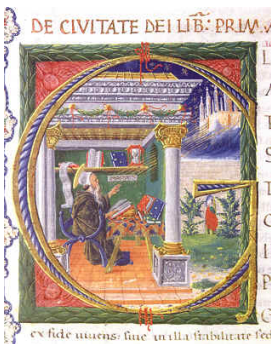 DE CIVITATE DEI LIB: PRIM
G
L
A
T
S
ex fide uiuens: siue in illa stabilitate